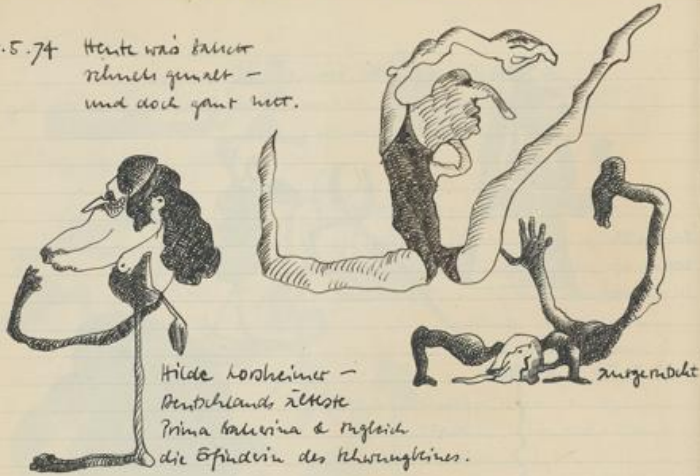 .5.74 Heute was Ballett
schnell gemalt –
und doch ganz nett.
Hilde Lorsheimer –
Deutschlands älteste
Prima Ballerina & zugleich
die Erfinderin des Schwungbeines.
ausgerutscht